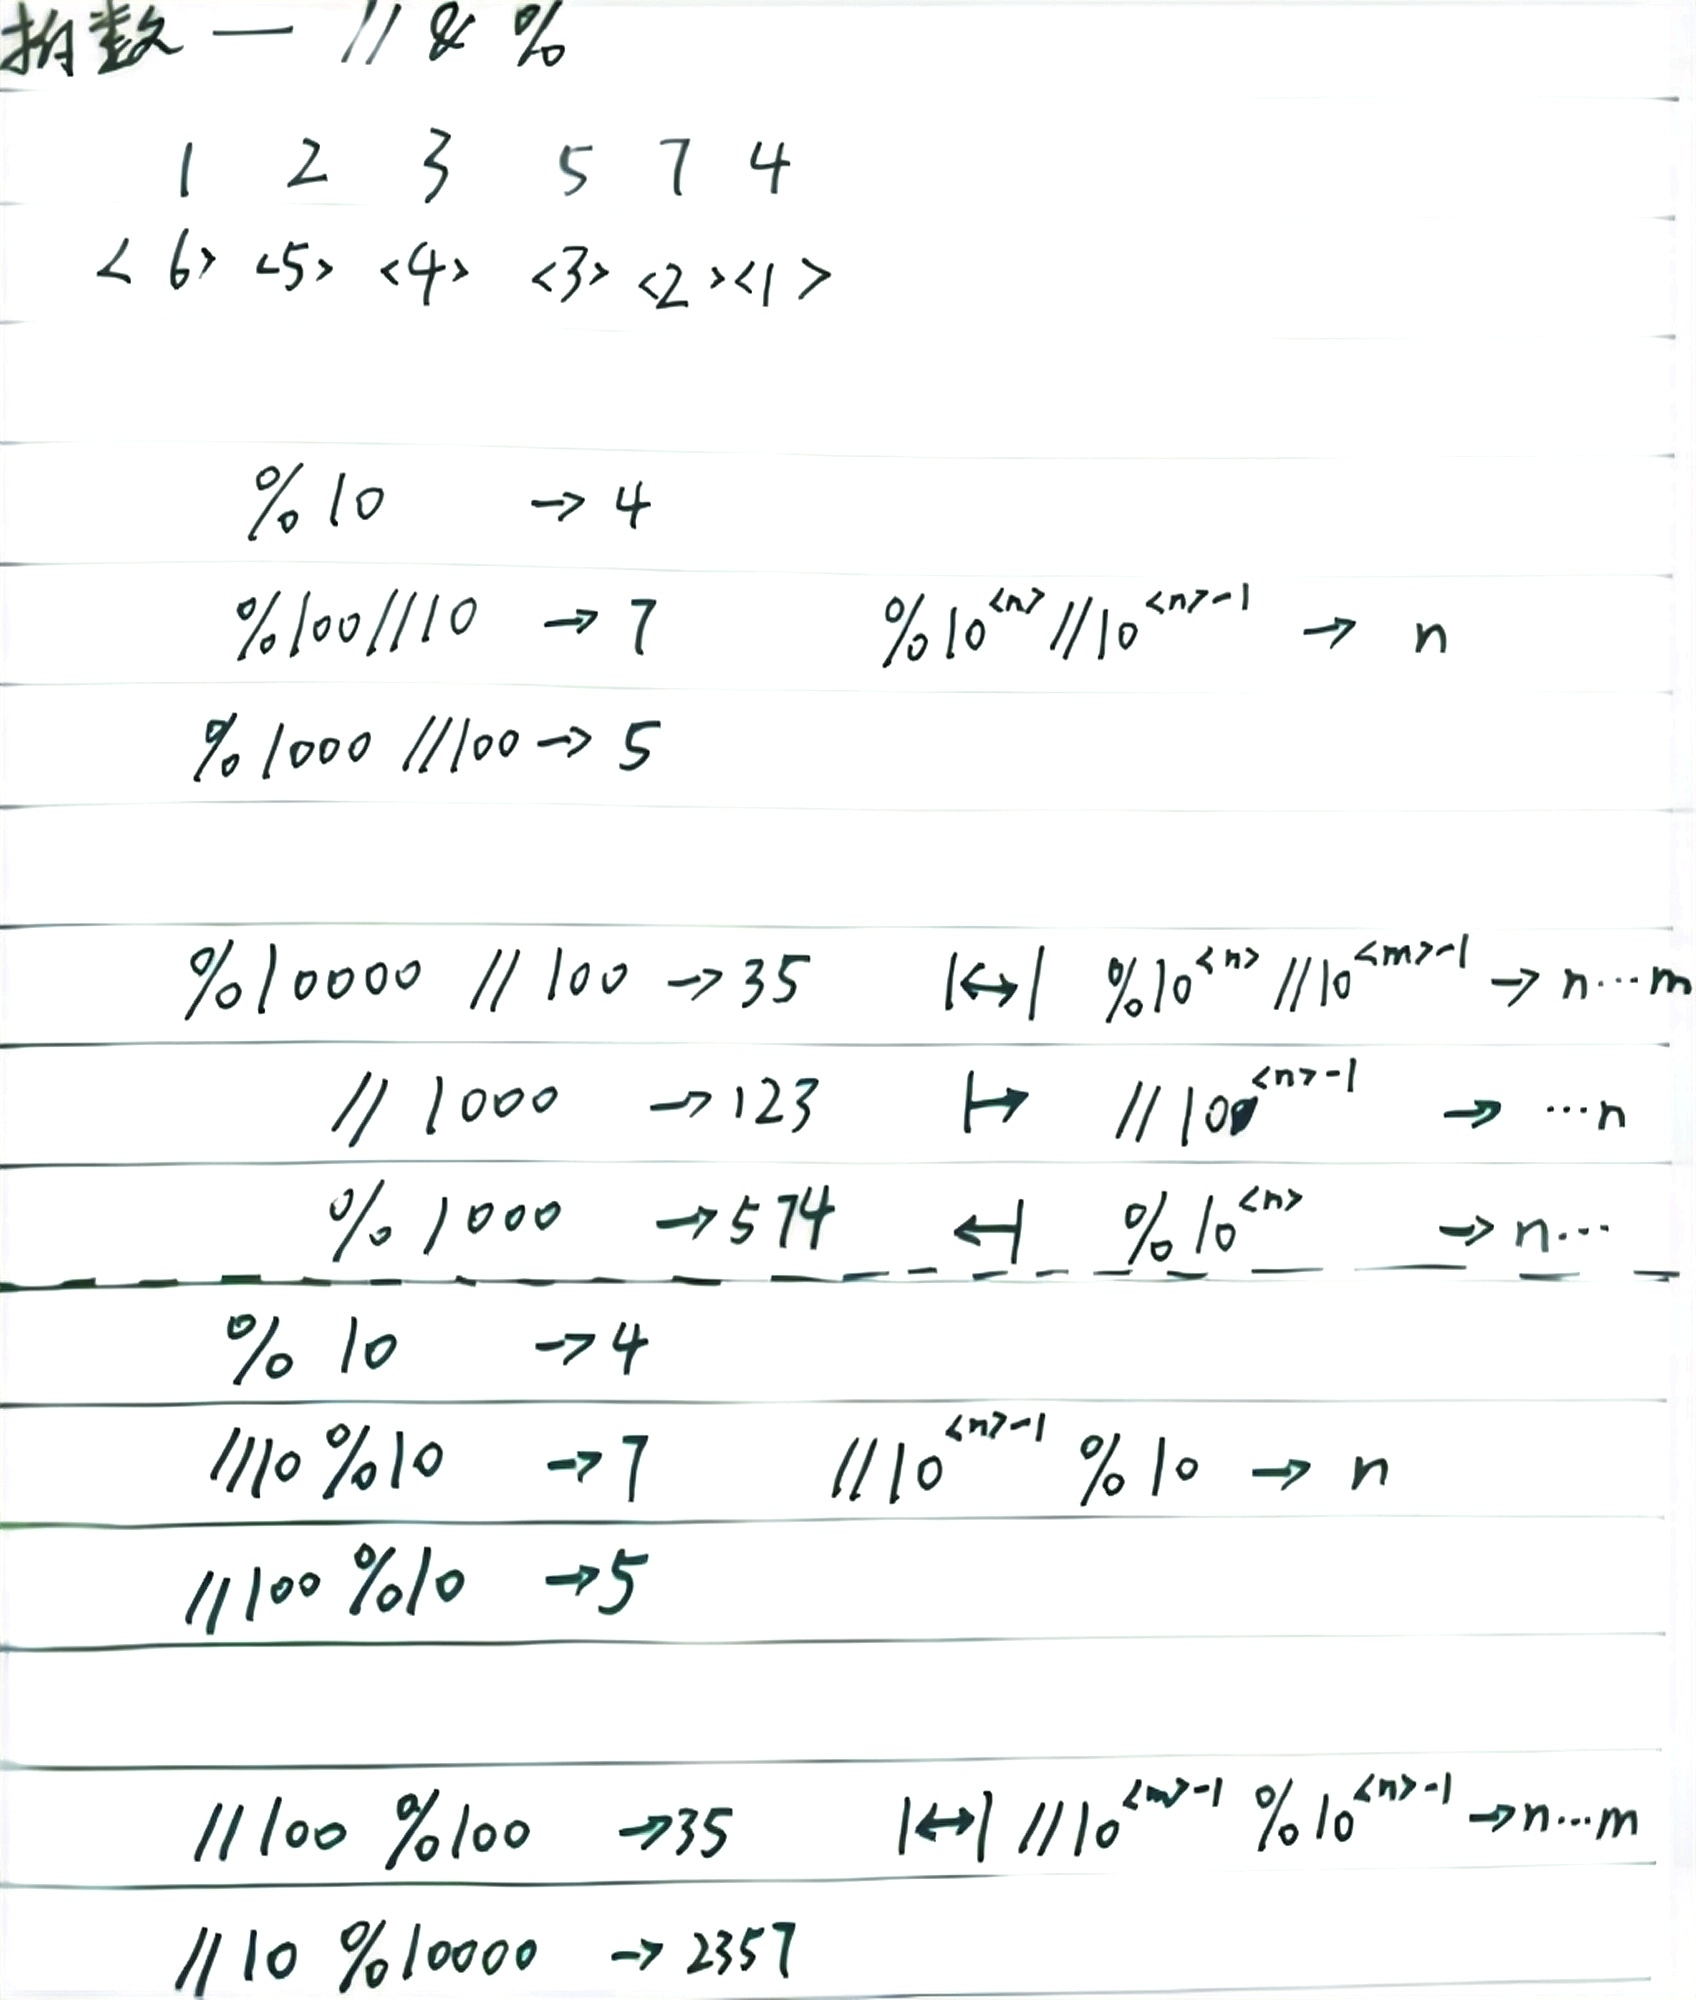 数 — // & %
1 2 3 5 7 4
<6> <5> <4> <3> <2> <1>
%10 → 4
%100//10 → 7 %10^<n>//10^<n>-1 → n
%1000//100 → 5
%10000 // 100 → 35 |↔| %10^<n>//10^<m>-1 → n...m
// 1000 → 123 ↦ //10^<n>-1 → ...n
% 1000 → 574 ↤ %10^<n> → n...
% 10 → 4
//10%10 → 7 //10^<n>-1 %10 → n
//100%10 → 5
//100 %100 → 35 |↔| //10^<m>-1 %10^<n>-1 → n...m
//10 %10000 → 2357